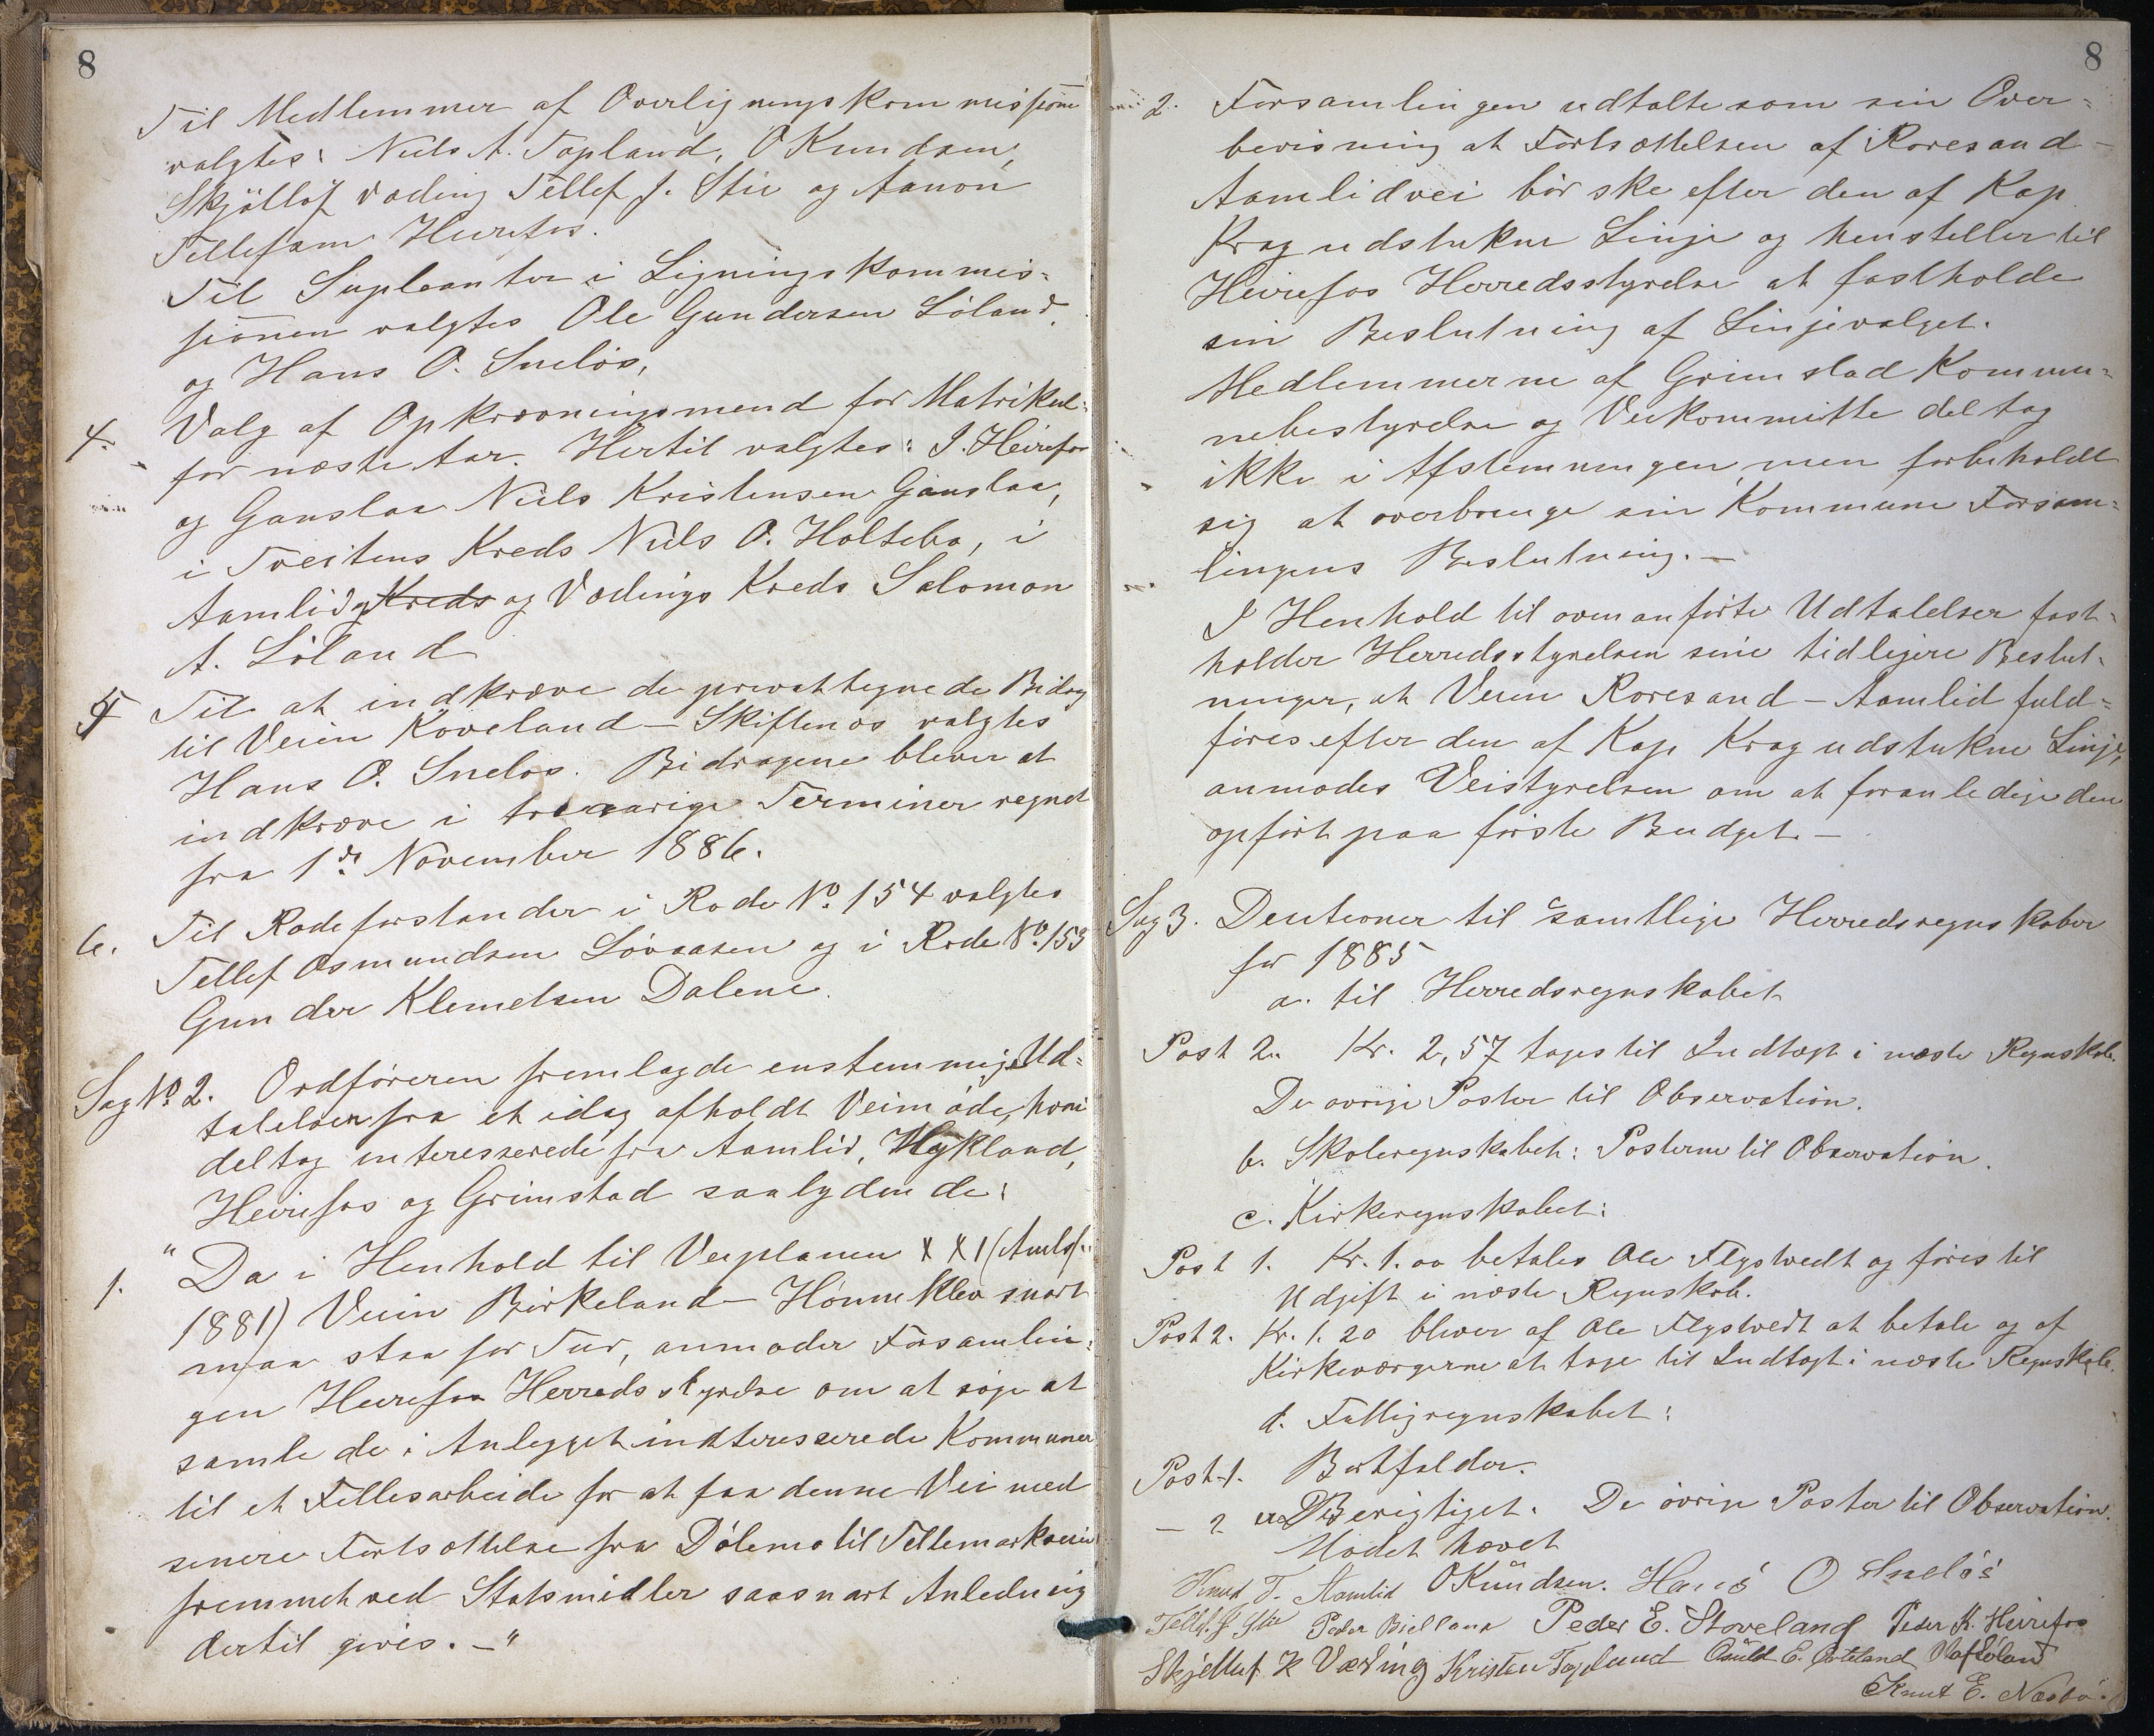 8
Til Medlemmer af Overligningskommissionen
valgtes: Niels A. Topland, O Knudsen,
Skjöllof Væding Tellef J. Stie og Aanon
Tellefsen Heirefos.
Til Supleanter i Ligningskommis-
sionen valgtes Ole Gundersen Löland
og Hans O. Snelös,
4. Valg af Opkrævningsmend for Matrikul-
for næste Aar. Hertil valgtes: I. Heirefos
og Ganslaa Niels Kristensen Ganslaa,
i Tveitens Kreds Niels O. Holtebo, i
Aamlid og Kreds og Vædings Kreds Salomon
A. Löland
5 Til at indkræve de privat tegnede Bidrag
til Veien Köveland - Skiftenes valgtes
Hans O. Snelös. Bidragene bliver at
indkræve i treaarige Terminer regnet
fra 1ste November 1886.
6. Til Rodeforstander i Rode No. 154 valgtes
Tellef Osmundsen Lövaasen og i Rode No. 153
Gunder Klemetsen Dalene.
Sag No. 2. Ordföreren fremlagde enstemmige Ud-
talelser fra et idag afholdt Veimöde, hvori
deltog interesserede fra Aamlid, Mykland,
Heirefos og Grimstad saalydende:
1. " Da i Henhold til Veiplanen XXI (Amtsf.
1881) Veien Birkeland - Hönneklev snart
maa staa for Tur, anmoder Forsamlin-
gen Heirefos Herredsstyrelse om at söge at
samle de i Anlegget indteresserede Kommuner
til et Fellesarbeide for at faa denne Vei med
senere Fortsættelse fra Dölemo til Tellemarksveien
fremmet ved Statsmidler saasnart Anledning
dertil gives. - "
8
2. Forsamlingen udtalte som sin Over-
bevisning at Fortsættelsen af Roresand -
Aamlidvei bör ske efter den af Kap.
Krag udstukne Linje og henstiller til
Heirefos Herredsstyrelse at fastholde
sin Beslutning af Linjevalget.
Medlemmerne af Grimstad Kommu-
nebestyrelse og Veikommitte deltog
ikke i Afstemningen, men forbeholdt
sig at overbringe sin Kommune Forsam-
lingens Beslutning. -
I Henhold til ovenanförte Udtalelser fast-
holder Herredsstyrelsen sine tidligere Beslut-
ninger, at Veien Roresand - Aamlid fuld-
föres efter den af Kap Krag udstukne Linje,
anmodes Veistyrelsen om at foranledige den
opfört paa förste Budget. -
Sag 3. Desitioner til samtlige Herredsregnskaber
for 1885
a. til Herredsregnskabet
Post 2. Kr. 2,57 tages til Indtægt i næste Regnskab.
De övrige Poster til Observation.
b. Skoleregnskabet: Posterne til Observation.
c. Kirkeregnskabet:
Post 1. Kr. 1.00 betales Ole Flystvedt og föres til
Udgift i næste Regnskab.
Post 2. Kr. 1.20 bliver af Ole Flystvedt at betale og af
Kirkeværgerne at tage til Indtægt i næste Regnskab.
d. Fattigregnskabet:
Post 1. Bortfalder.
- 2 er Berigtiget. De övrige Poster til Observation.
Mödet hævet
Knud T. Aamlid OKnudsen. Hans O Snelös
Tellef. J. Stie Peder Bielland Peder E. Stoveland Peder K. Heirefos
Skjelluf K Væding Kristen Topland Osuld E. Löland
Knut E. Næsbö.